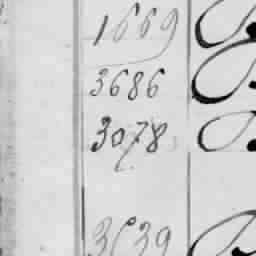 1669
3686
3078
3639